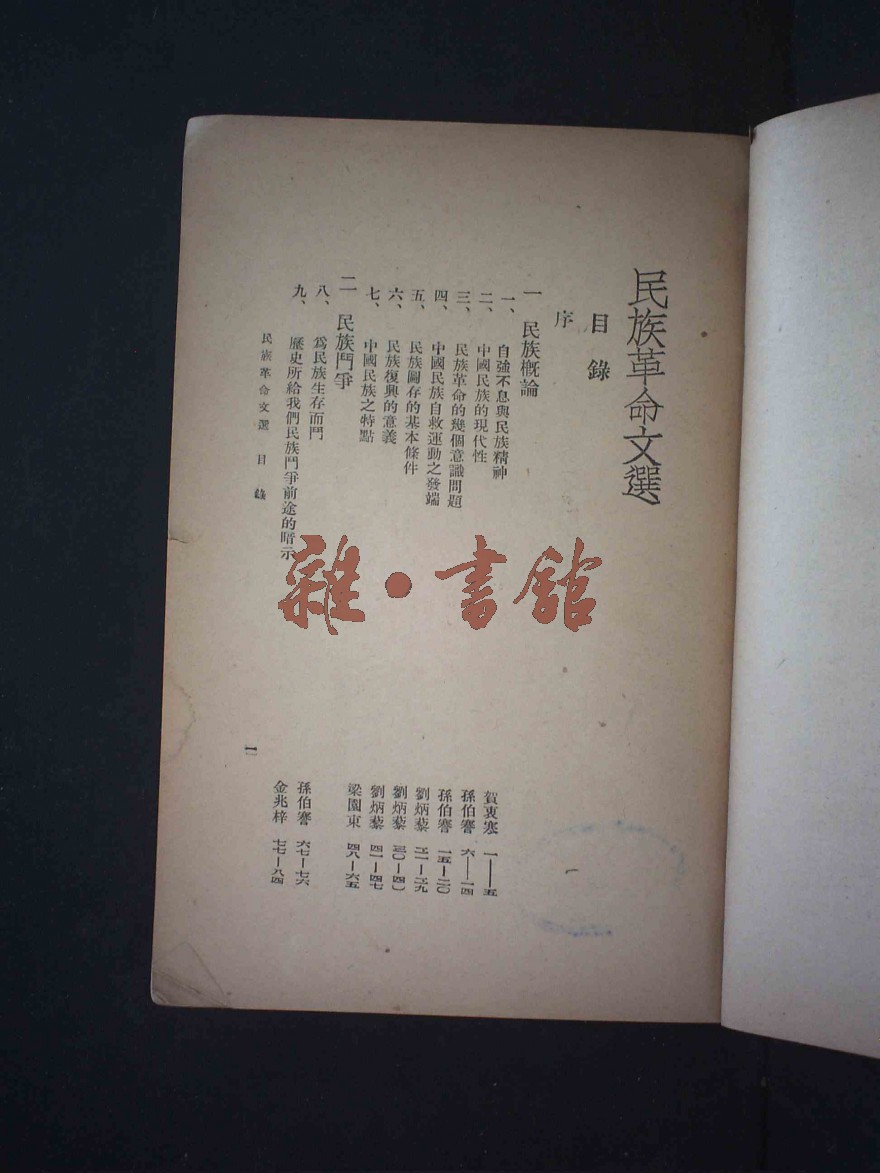 民族革命文選
目錄
序
一 民族概論
一、自強不息與民族精神 賀衷寒 一——五
二、中國民族的現代性 孫伯謇 六——一四
三、民族革命的幾個意識問題 孫伯謇 一五—二〇
四、中國民族自救運動之發端 劉炳藜 二一—二九
五、民族圖存的基本條件 劉炳藜 三〇—四〇
六、民族復興的意義 劉炳藜 四一—四七
七、中國民族之特點 梁園東 四八—六五
二 民族鬥爭
八、爲民族生存而鬥 孫伯謇 六七—七六
九、歷史所給我們民族鬥爭前途的暗示 金兆梓 七七—八四
民族革命文選 目錄 一
雜·書館